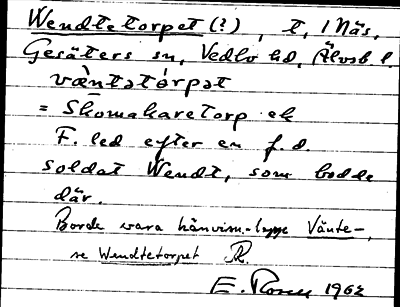 Wendtetorpet (?), t, 1 Näs,
Gesäters sn, Vedbo hd, Älvsb. l.
væ̀ntatórpat
= Skomakaretorp ek
F. led efter en f.d.
soldat Wendt, som bodde
där.
Borde vara hänvisn.-lapp Vänte-,
se Wendtetorpet R.
E. 1962